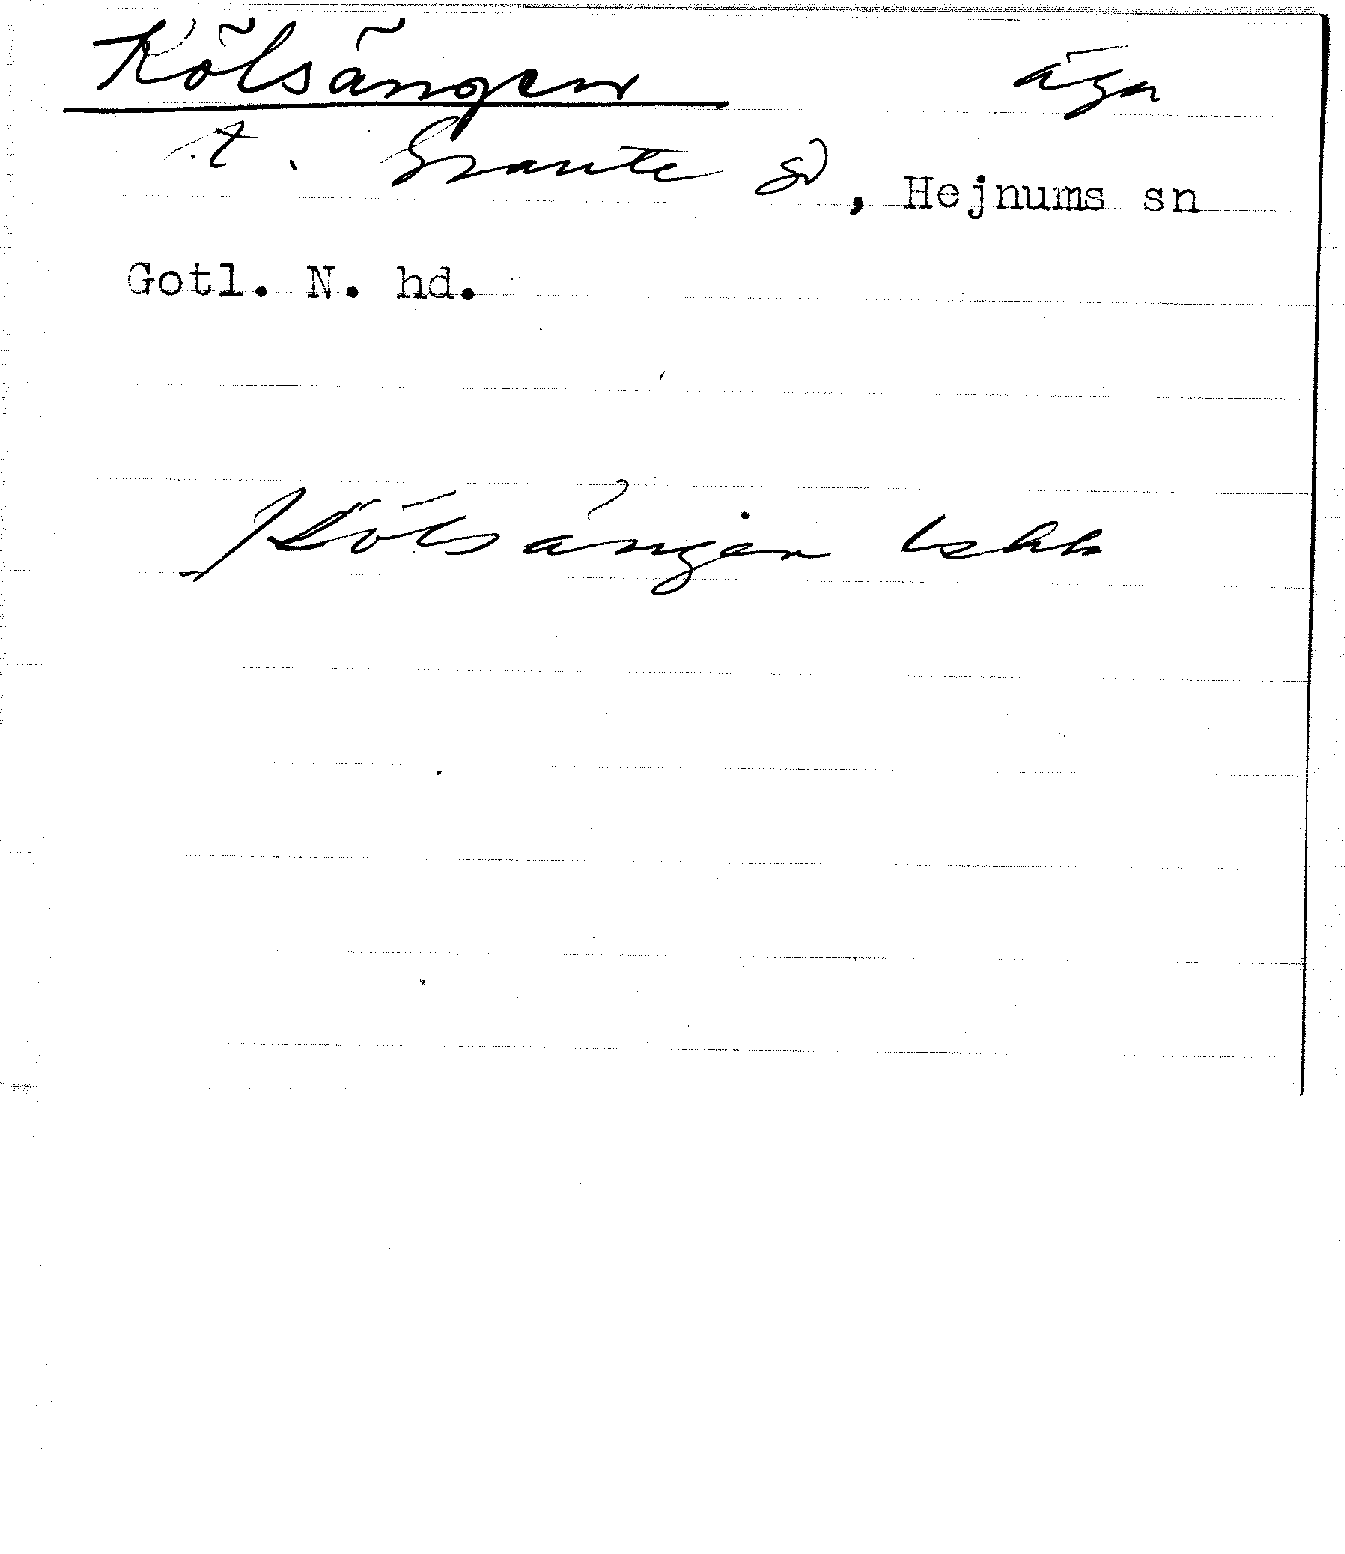 Kölsängen äga
t. Graute gd, Hejnums sn
Gotl. N. hd.
Kölsängen